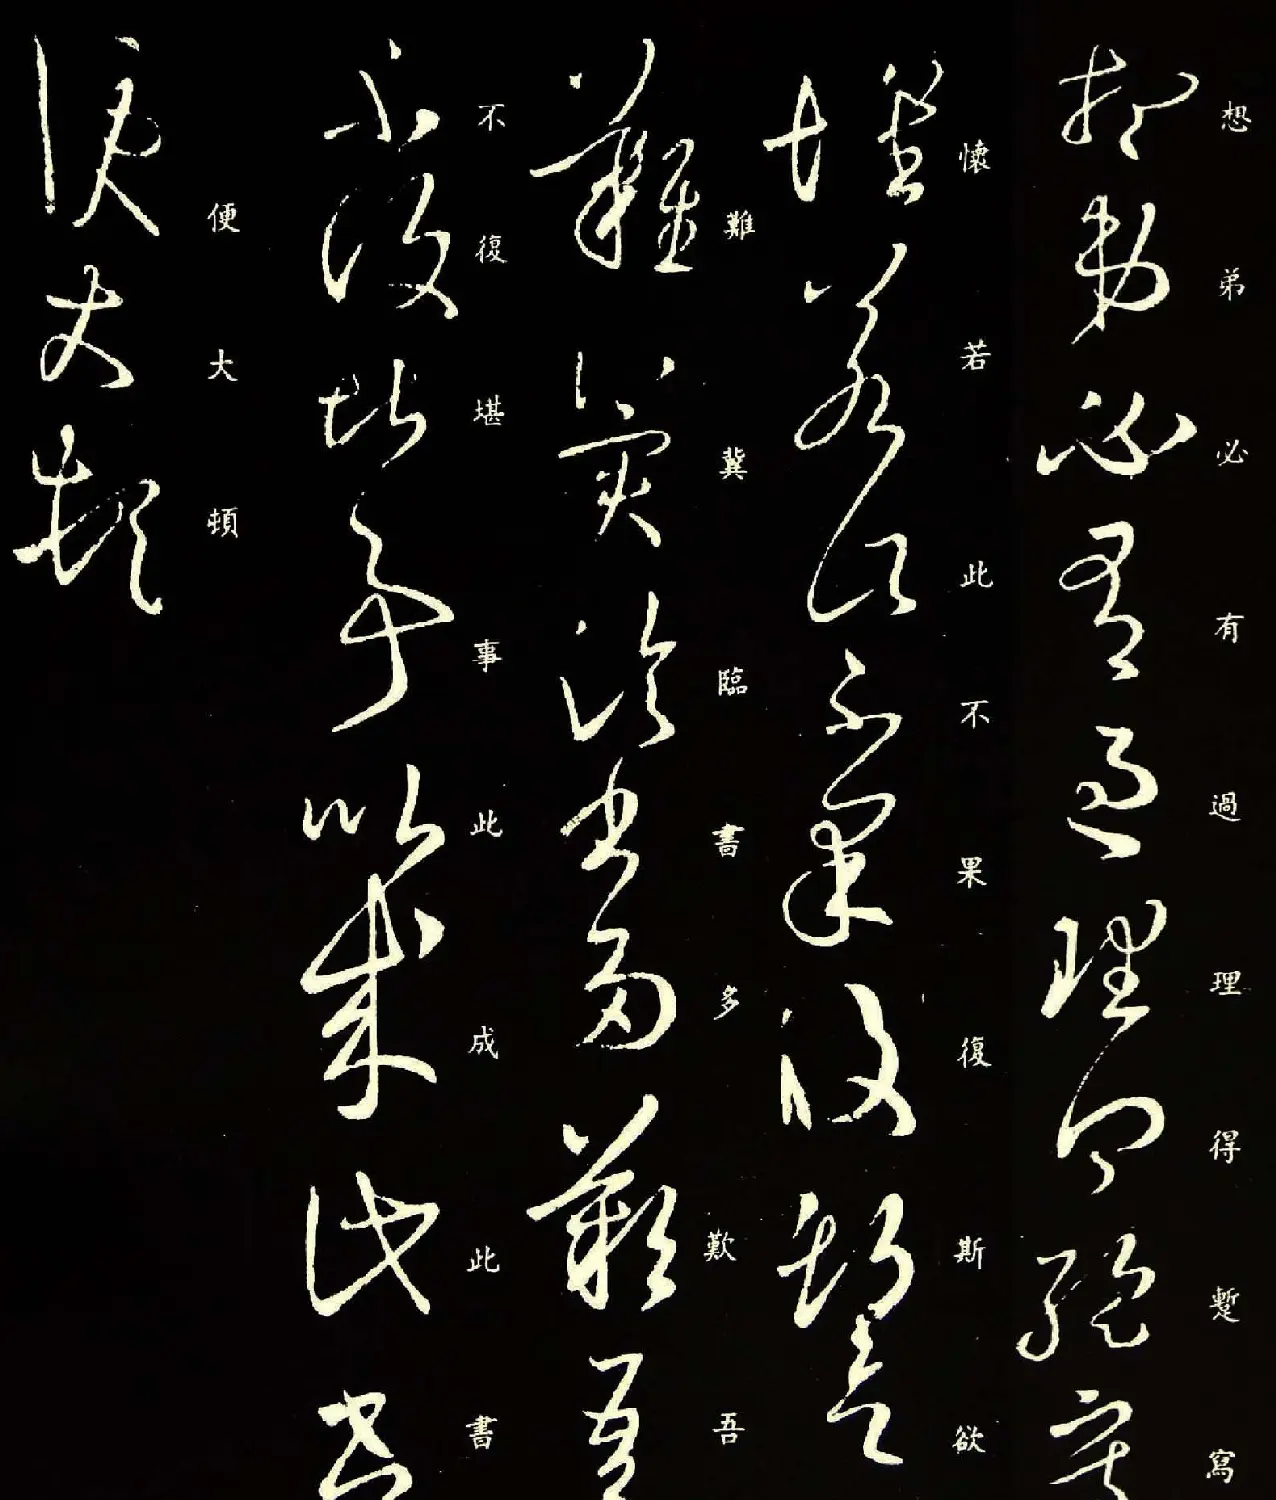 想弟必有過理得暫寫
懷若此不果復斯欲
難冀臨書多歎吾
不復堪事此成此書
便大頓